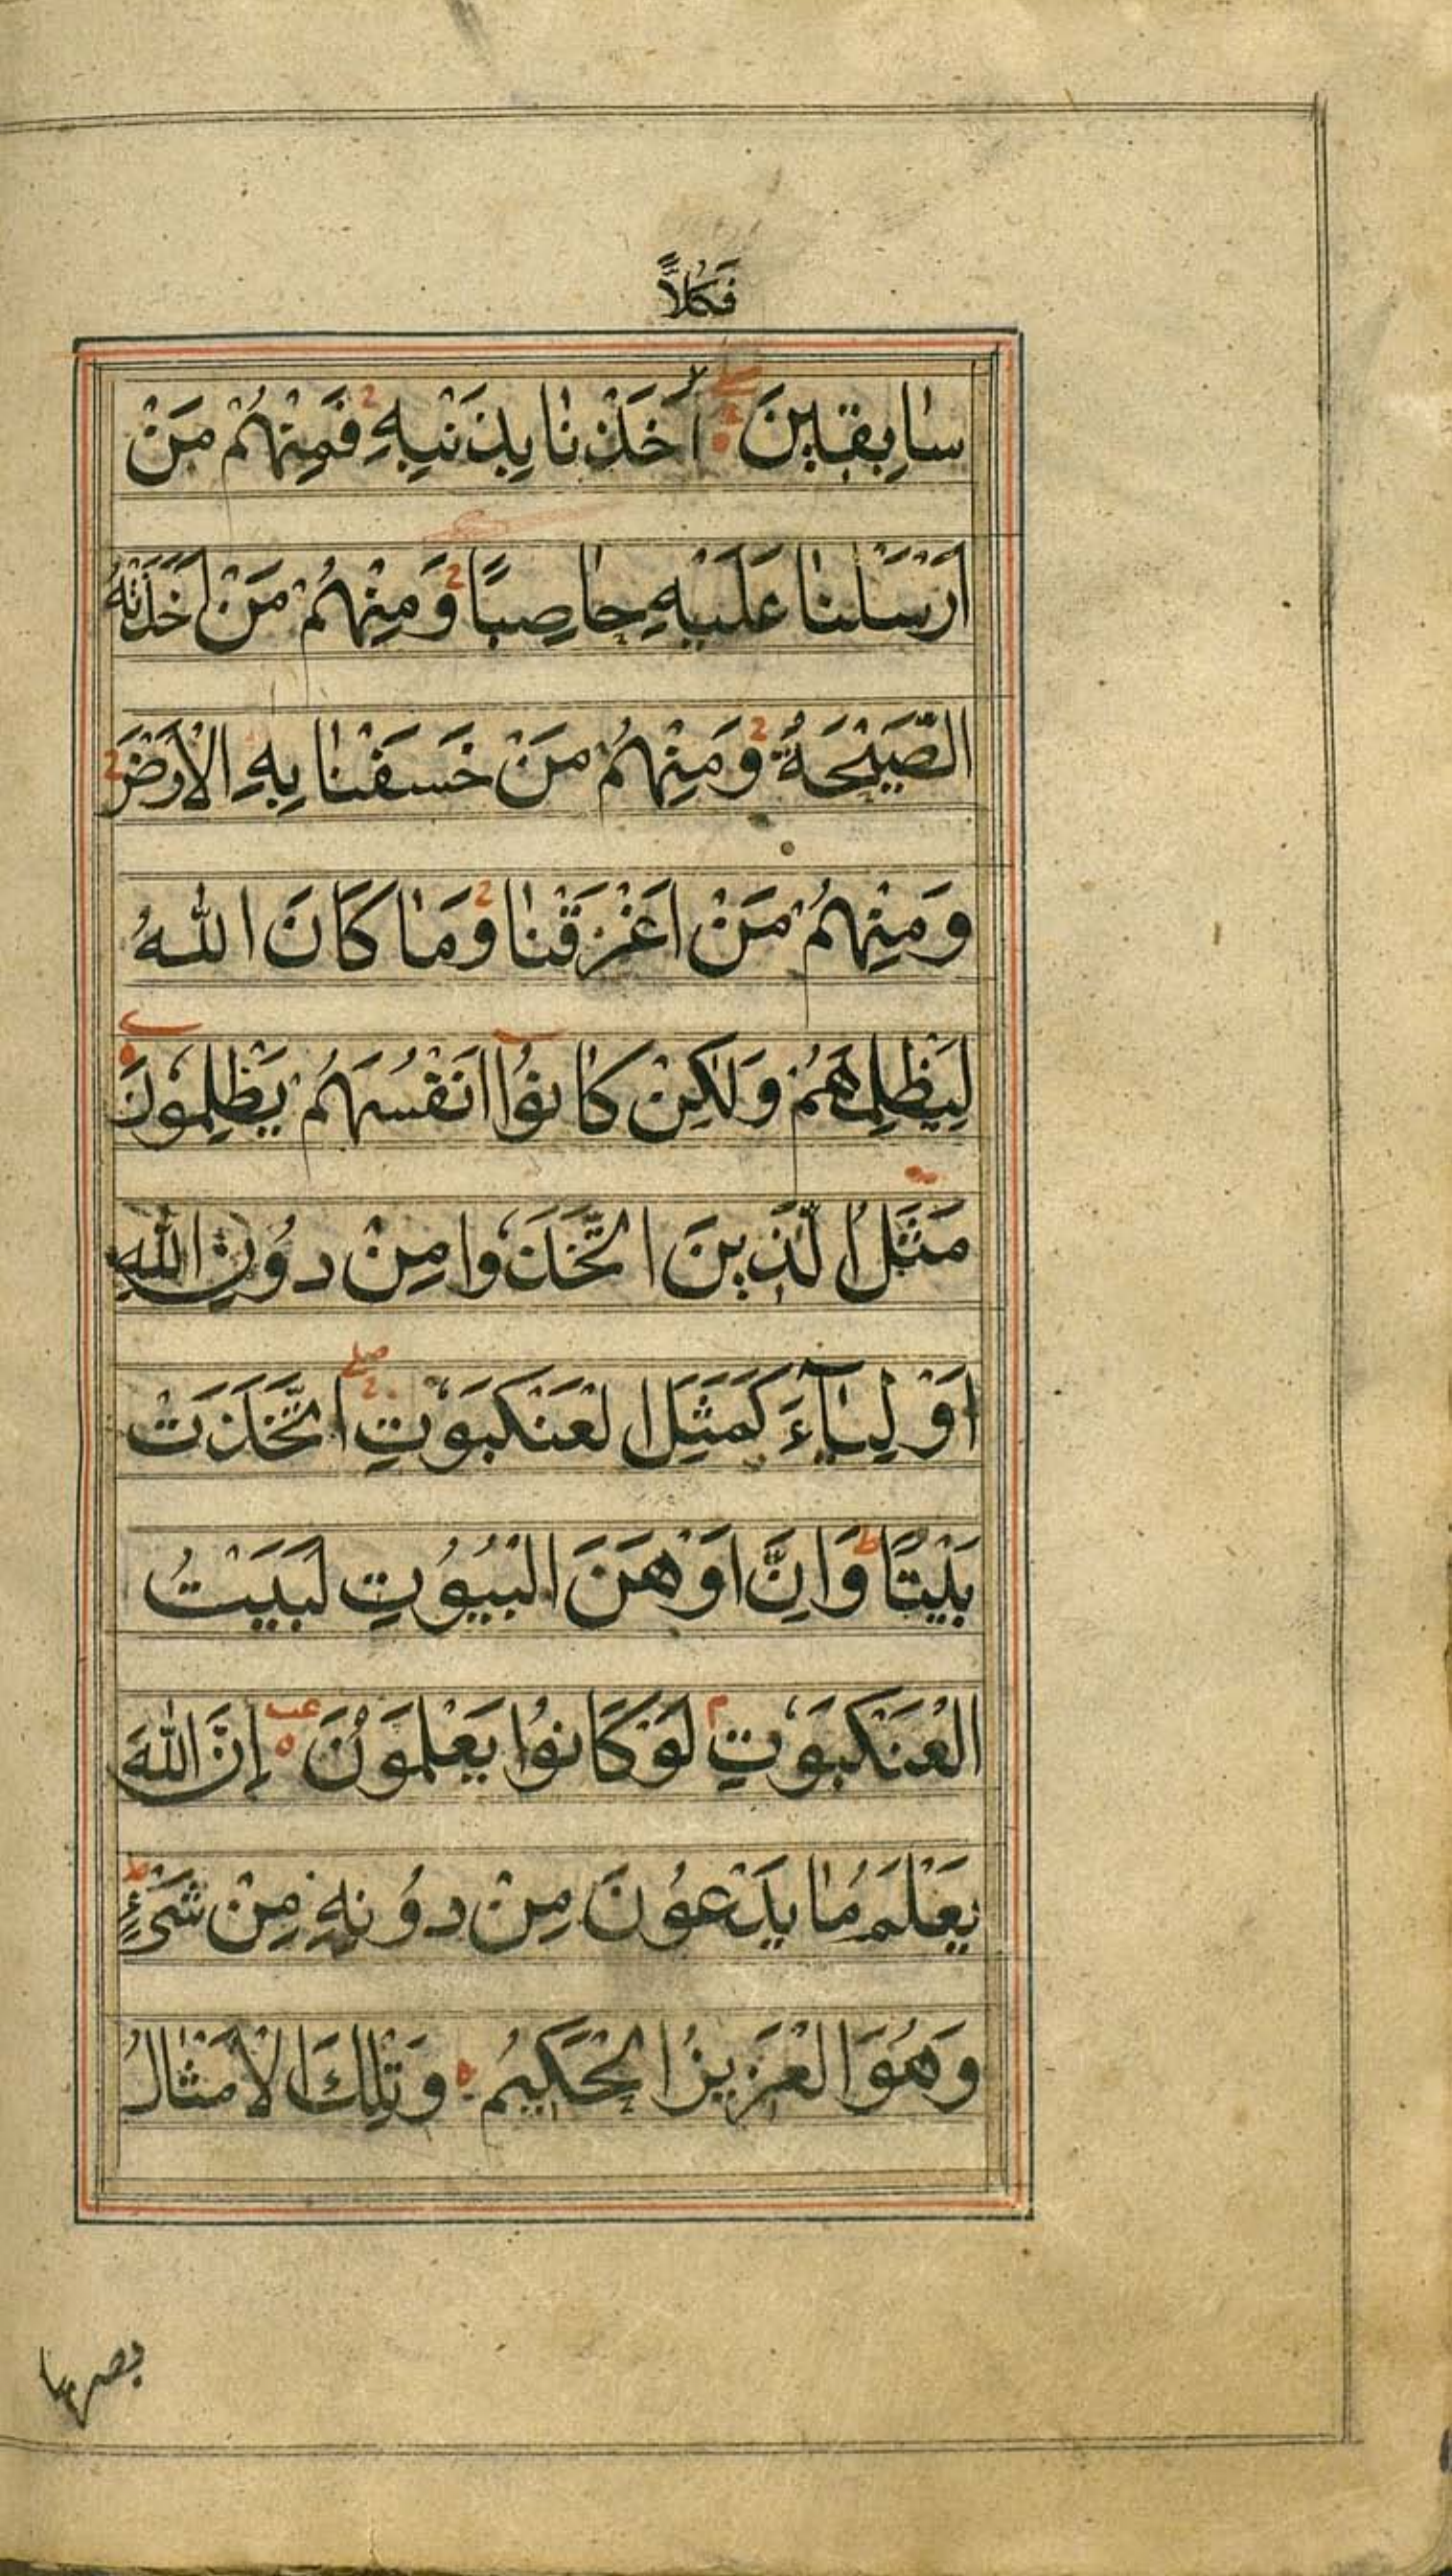 فَكُلًّا
سَابِقِينَ اَخَذْنَا بِذَنْبِهِ فَمِنْهُمْ مَنْ
اَرْسَلْنَا عَلَيْهِ حَاصِبًا وَمِنْهُمْ مَنْ اَخَذَتْهُ
الصَّيْحَةُ وَمِنْهُمْ مَنْ خَسَفْنَا بِهِ الْاَرْضَ
وَمِنْهُمْ مَنْ اَغْرَقْنَا وَمَا كَانَ اللهُ
لِيَظْلِمَهُمْ وَلٰكِنْ كَانُوا اَنْفُسَهُمْ يَظْلِمُونَ
مَثَلُ الَّذِينَ اتَّخَذُوا مِنْ دُونِ اللهِ
اَوْلِيَآءَ كَمَثَلِ الْعَنْكَبُوتِ اتَّخَذَتْ
بَيْتًا وَاِنَّ اَوْهَنَ الْبُيُوتِ لَبَيْتُ
الْعَنْكَبُوتِ لَوْ كَانُوا يَعْلَمُونَ اِنَّ اللهَ
يَعْلَمُ مَا يَدْعُونَ مِنْ دُونِهِ مِنْ شَيْءٍ
وَهُوَ الْعَزِيزُ الْحَكِيمُ وَتِلْكَ الْاَمْثَالُ
نضربها